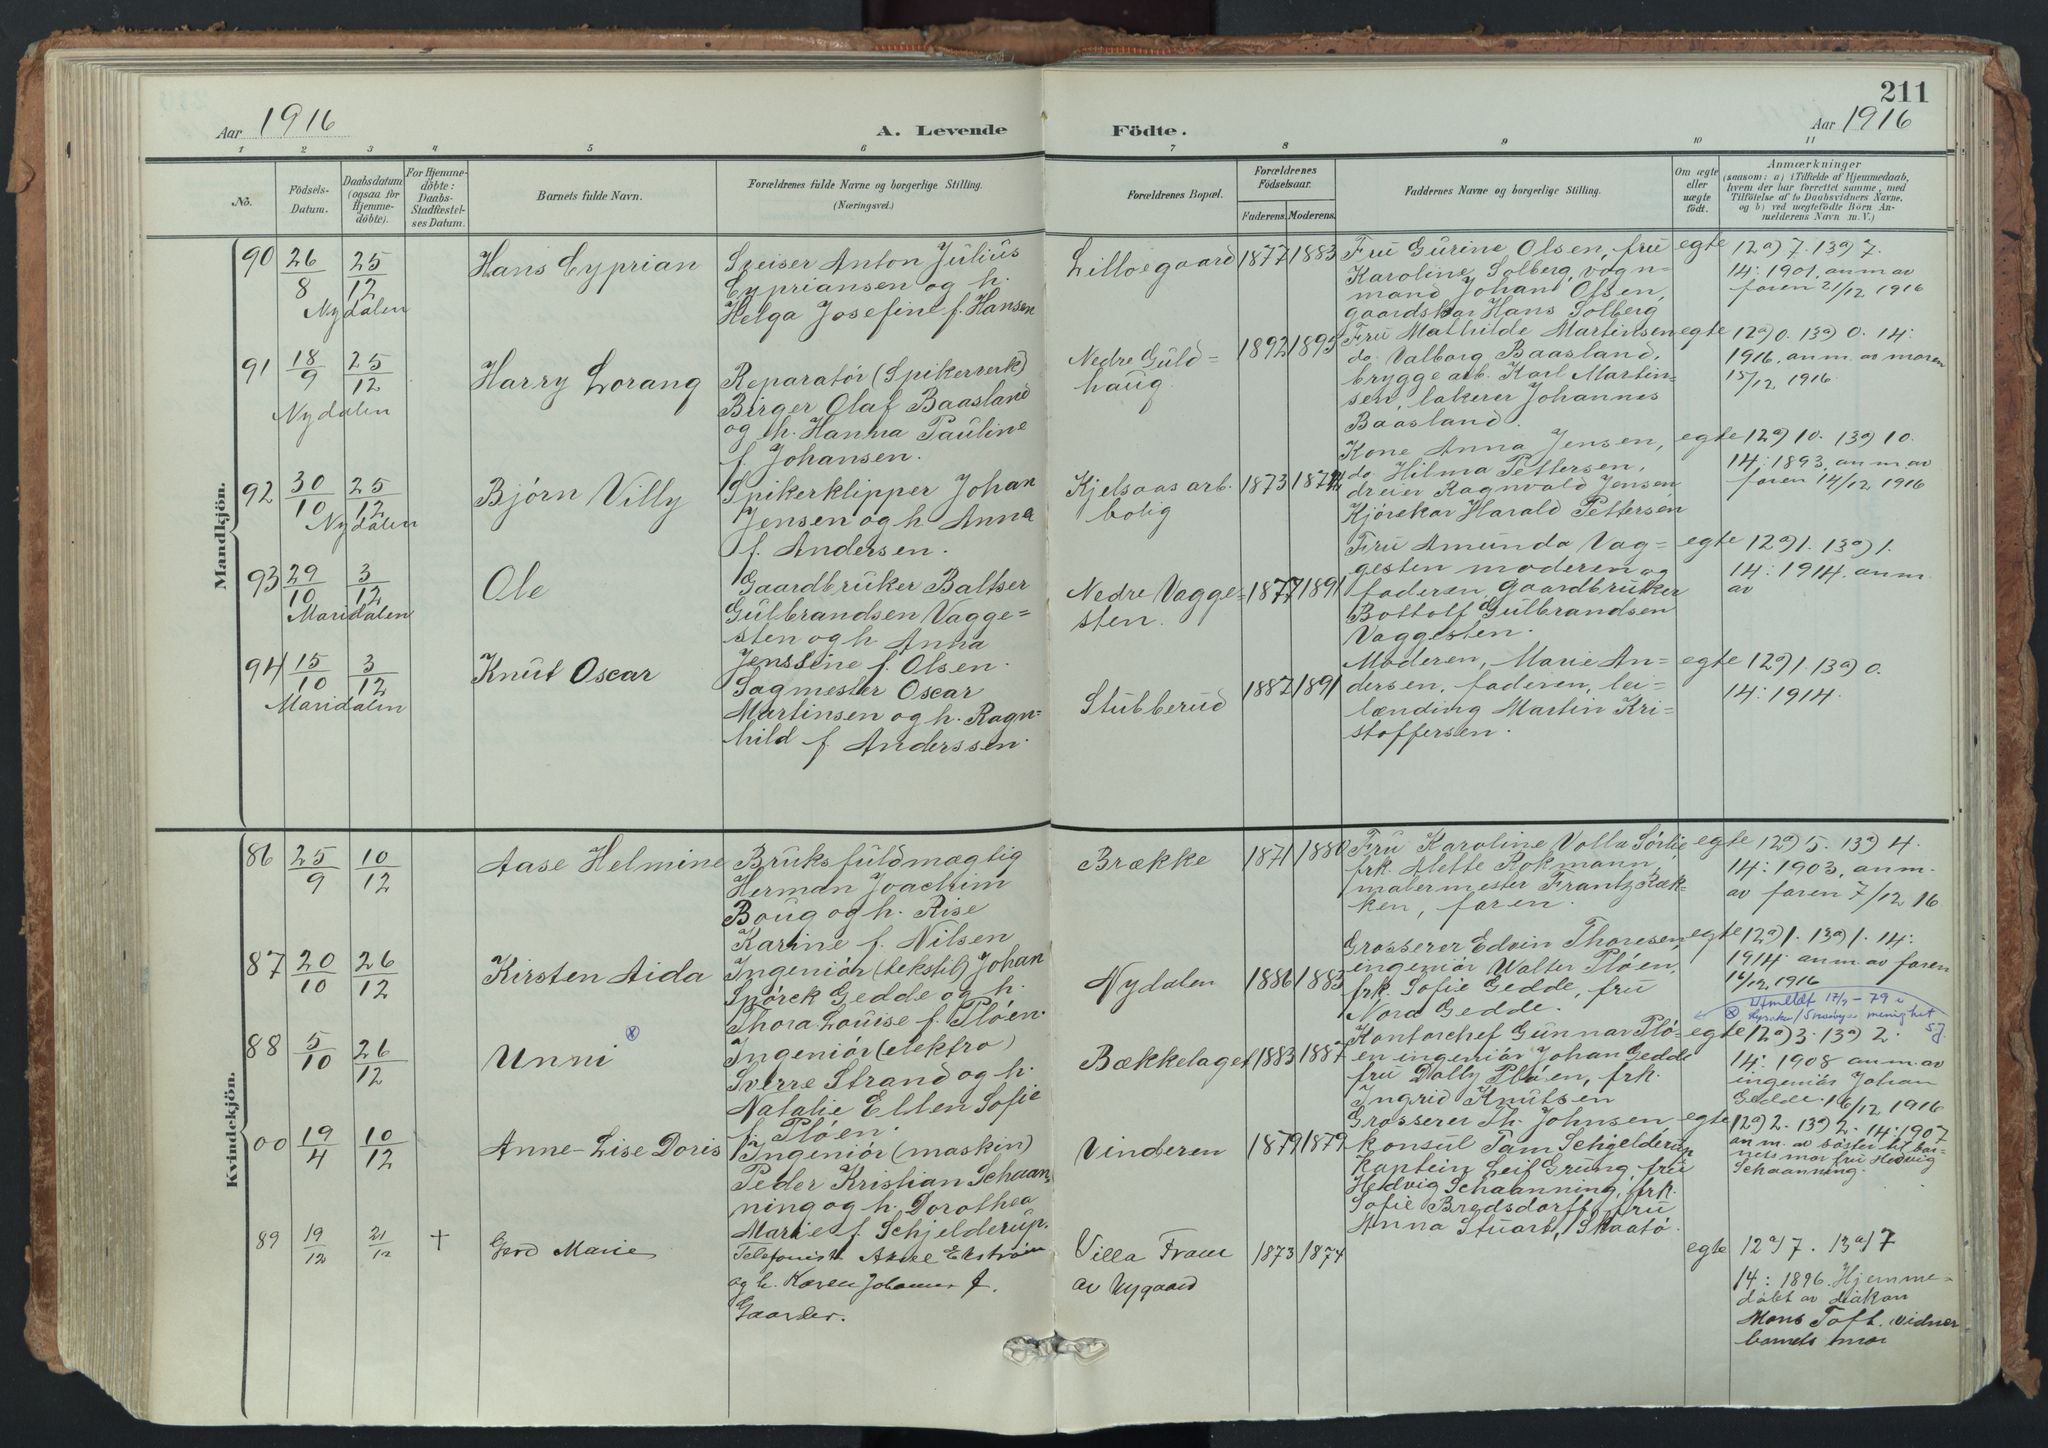 211
Aar 1916
A. Levende Födte.
Aar 1916
1 2 3 4 5 6 7 8 9 10 11
No.
Födsels-Datum.
Daabsdatum (ogsaa for Hjemme-döbte).
For Hjemme-döbte: Daabs-Stadfæstel-ses Datum.
Barnets fulde Navn.
Forældrenes fulde Navne og borgerlige Stilling.
(Næringsvei.)
Forældrenes Bopæl.
Forældrenes Födselsaar.
Faderens. Moderens.
Faddernes Navne og borgerlige Stilling.
Om ægte eller uægte födt.
Anmærkninger
(saasom: a) i Tilfælde af Hjemmedaab,
hvem der har forrettet samme, med
Tilföielse af to Daabsvidners Navne,
og b) ved uægtefödte Börn An-
melderens Navn m. V.)
Mandkjön.
90 26/8 25/12 Nydalen
Hans Cyprian
Speiser Anton Julius
Cypriansen og h.
Helga Josefine f. Hansen
Lilloegaard 1877 1883
Fru Gurine Olsen, fru
Karoline Solberg, vogn-
mand Johan Olsen,
gaardskar Hans Solberg
egte
12a) 7. 13a) 7.
14: 1901, anm av
faren 21/12 1916
91 18/9 25/12 Nydalen
Harry Lorang
Reparatør (Spikerverk)
Birger Olaf Baasland
og h. Hanna Pauline
f. Johansen.
Nedre Guld-
haug.
1892 1895
Fru Mathilde Martinsen
do. Valborg Baasland,
bryggearb. Karl Martin-
sen, lakerer Johannes
Baasland.
egte
12a) 0. 13a) 0. 14:
1916, anm. av moren
15/12 1916.
92 30/10 25/12 Nydalen
Bjørn Villy
Spikerklipper Johan
Jensen og h. Anna
f. Andersen.
Kjelsaas arb.
bolig
1873
Kone Anna Jensen,
do. Hilma Pettersen,
dreier Ragnvald Jensen
Kjørekar Harald Pettersen
egte
12a) 10. 13a) 10.
14: 1893, anm. av
faren 14/12 1916
93 29/10 3/12 Maridalen
Ole
Gaardbruker Baltser
Gulbrandsen Vagge-
sten og h. Anna
Jenssine f. Olsen.
Nedre Vagge-
sten.
1877 1891
Fru Amunda Vag-
gesten moderen og
faderen, gaardbruker
Bottolf Gulbrandsen
Vaggesten.
egte
12a) 1. 13a) 1.
14: 1914. anm.
av
94 15/10 3/12 Maridalen
Knut Oscar
Sagmester Oscar
Martinsen og h. Ragn-
hild f. Anderssen.
Stubberud 1887 1891
Moderen, Marie An-
dersen, faderen, lei-
lænding Martin Kri-
stoffersen.
egte
12a) 1. 13a) 0.
14: 1914.
Kvindekjön.
86 25/9 10/12
Aase Helmine
Bruksfuldmægtig
Herman Joachim
Boug og h. Rise
Karine f. Nilsen
Brække 1871 1880
Fru Karoline Volla Sørlie
frk. Alette Rokmann,
malermester Frantz Ræk-
ken, faren.
egte
12a) 5. 13a) 4.
14: 1903, anm.
av faren 7/12 16
87 20/10 26/12
Kirsten Aida
Ingeniør (tekstil) Johan
Spørck Gedde og h.
Thora Louise f. Pløen.
Nydalen 1886 1883
Grosserer Edvin Thoresen
ingeniør Walter Pløen,
frk. Sofie Gedde, fru
Nora Gedde.
egte
12a) 1. 13a) 1. 14:
1914 anm. av faren
16/12 1916
88 5/10 26/12
Unni
Ingeniør (elektro)
Sverre Strand og h.
Natalie Ellen Sofie
f. Pløen.
Bækkelaget 1883 1887
Kontorchef Gunnar Plø-
en ingeniør Johan Gedde
fru Dolly Pløen, frk.
Ingrid Knutsen
egte
Utmeldt 17/9-79 i
menighet
SJ
12a) 3. 13a) 2.
14: 1908 anm. av
ingeniør Johan
Gedde. 16/12 1916
00 19/4 10/12
Anne-Lise Doris
Ingeniør (maskin)
Peder Kristian Schaan-
ning og h. Dorothea
Marie f. Schjelderup.
Vinderen 1879 1879
Grosserer Th. Johnsen
konsul Tam Schjelderup
Kaptein Leif Grung, fru
Hedvig Schaanning, frk.
Sofie Bredsdorff, fru
Anna Stuart, Skaatø
egte
12a) 2. 13a) 2. 14: 1907
anm. av søster til bar-
nets mor fru Hedvig
Schaanning.
89 19/12 21/12 +
Gerd Marie
Telefonist Axel Ekstrøm
og h. Karen Johanne f.
Gaarder.
Villa Fram
av Nygaard
1873 1874
egte
12a) 7. 13a) 7
14: 1896. Hjemme-
døbt av diakon
Mons Toft. vidner
barnets mor